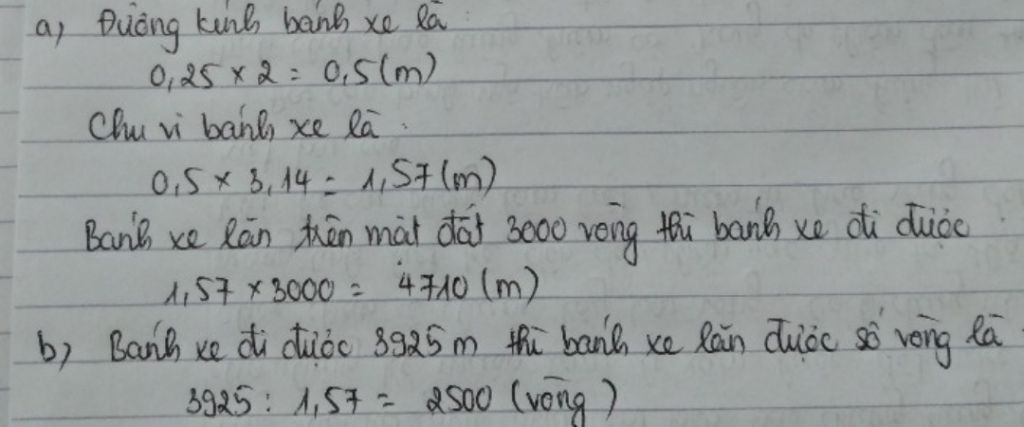 a) Đường kính bánh xe là
0,25 × 2 = 0,5 (m)
Chu vi bánh xe là.
0,5 × 3,14 = 1,57 (m)
Bánh xe lăn trên mặt đất 3000 vòng thì bánh xe đi được
1,57 × 3000 = 4710 (m)
b) Bánh xe đi được 3925 m thì bánh xe lăn được số vòng là
3925 : 1,57 = 2500 (vòng)